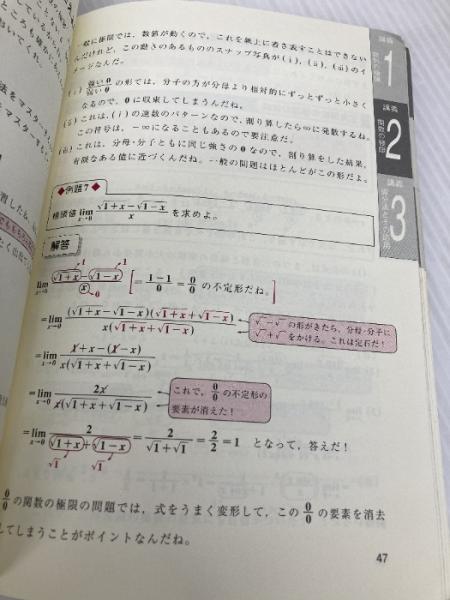 一般に極限では，数値が動くので，これを紙上に書き表すことはできない
んだけれど，この動きのあるもののスナップ写真が(ⅰ), (ⅱ), (ⅲ)のイ
メージなんだ。
(ⅰ) 強い0 の形では，分子の方が分母より相対的にずっとずっと小さく
なるので，0に収束してしまうんだね。
(ⅱ) これは，(ⅰ)の逆数のパターンなので，割り算したら∞に発散するね。
この符号は，−∞になることもあるので要注意だ。
(ⅲ) これは，分母・分子ともに同じ強さの0なので，割り算をした結果，
有限なある値に近づくんだね。一般の問題はほとんどがこの形だよ。
講義
1
講義
2
関数の極限
講義
3
◆例題7◆
極限値 lim x→0 (√1+x − √1−x)/x を求めよ。
解答
lim x→0 (√1+x − √1−x)/x [ = (1−1)/0 = 0/0 の不定形だね。]
1
1
0
= lim x→0 (√1+x − √1−x)(√1+x + √1−x) / x(√1+x + √1−x)
√ − √ の形がきたら，分母・分子に
√ + √ をかける。これは定石だ！
= lim x→0 1+x−(1−x) / x(√1+x + √1−x)
= lim x→0 2x / x(√1+x + √1−x)
これで，0/0 の不定形の
要素が消えた！
= lim x→0 2/(√1+x + √1−x) = 2/(√1+√1) = 2/2 = 1 となって，答えだ！
√1 √1
0/0 の関数の極限の問題では，式をうまく変形して，この 0/0 の要素を消去
してしまうことがポイントなんだね。
47